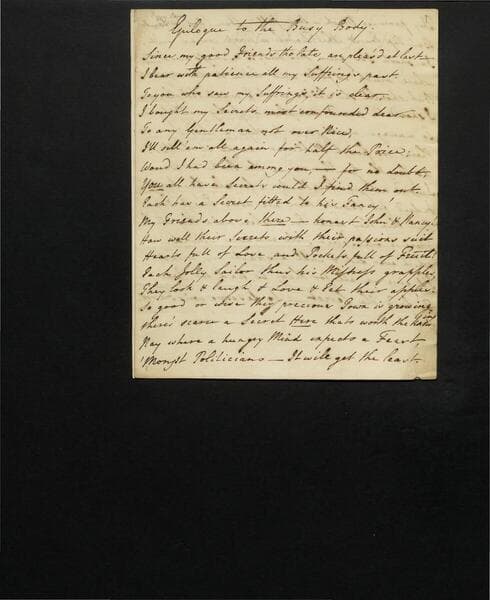 Epilogue to the Busy Body.
Since my good Friends tho late are pleas'd at last
I bear with patience all my Suffrings past
To you who saw my Suffrings, it is clear,
I bought my Secrets most confounded dear.
To any Gentleman not over Nice
I'll sell 'em all again for half the Price;
Wou'd I had been among you, — for no doubt
You all have Secrets could I find them out.
Each has a Secret fitted to his Fancy!
My Friends above there — honest John & Nancy!
How well their Secrets with their passions suit
Hearts full of Love and Pockets full of Fruit!
Each Jolly Sailor thus his Mistress grapples,
They look & laugh & Love & Eat their apples.
So good or wise this precious Town is growing
There's scarce a Secret Here that's worth the knowing
Nay where a hungry Mind expects a Feast
'Mongst Politicians — It will get the least.